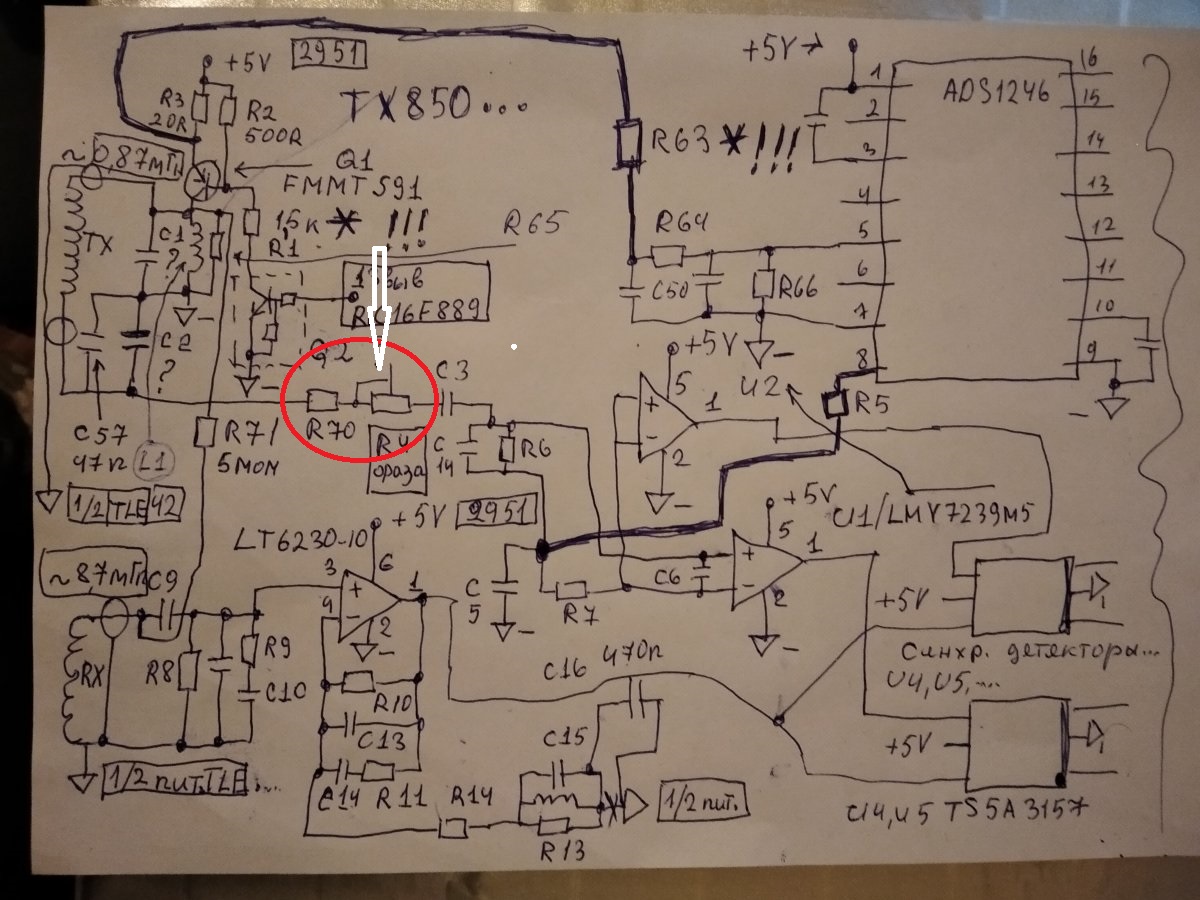 +5V 2951
TX850...
R3
20R
R2
500R
~0,87мГн
Q1
FMMT591
15к * !!!
R1
R65
TX
C1
?
C2
?
Q2
C57
47n
L1
1/2 TLE 42
R71
5мом
R70
R4
фаза
C3
C
14
R6
+5V 2951
+5V→
ADS1246
1
2
3
4
5
6
7
8
16
15
14
13
12
11
10
9
R63 * !!!
R64
C50
R66
+5V
U2
5
+
-
1
2
R5
+5V
5
U1/LMV7239M5
+
-
1
2
C6
C
5
R7
LT6230-10
3
6
+
4
-
1
2
~87мГн
C9
RX
R8
R9
C10
R10
C13
C14 R11
R14
C15
R13
C16
470п
1/2 пит. TLE...
1/2 пит.
+5V
Синхр. детекторы...
U4, U5,...
+5V
U4, U5 TS5A3157